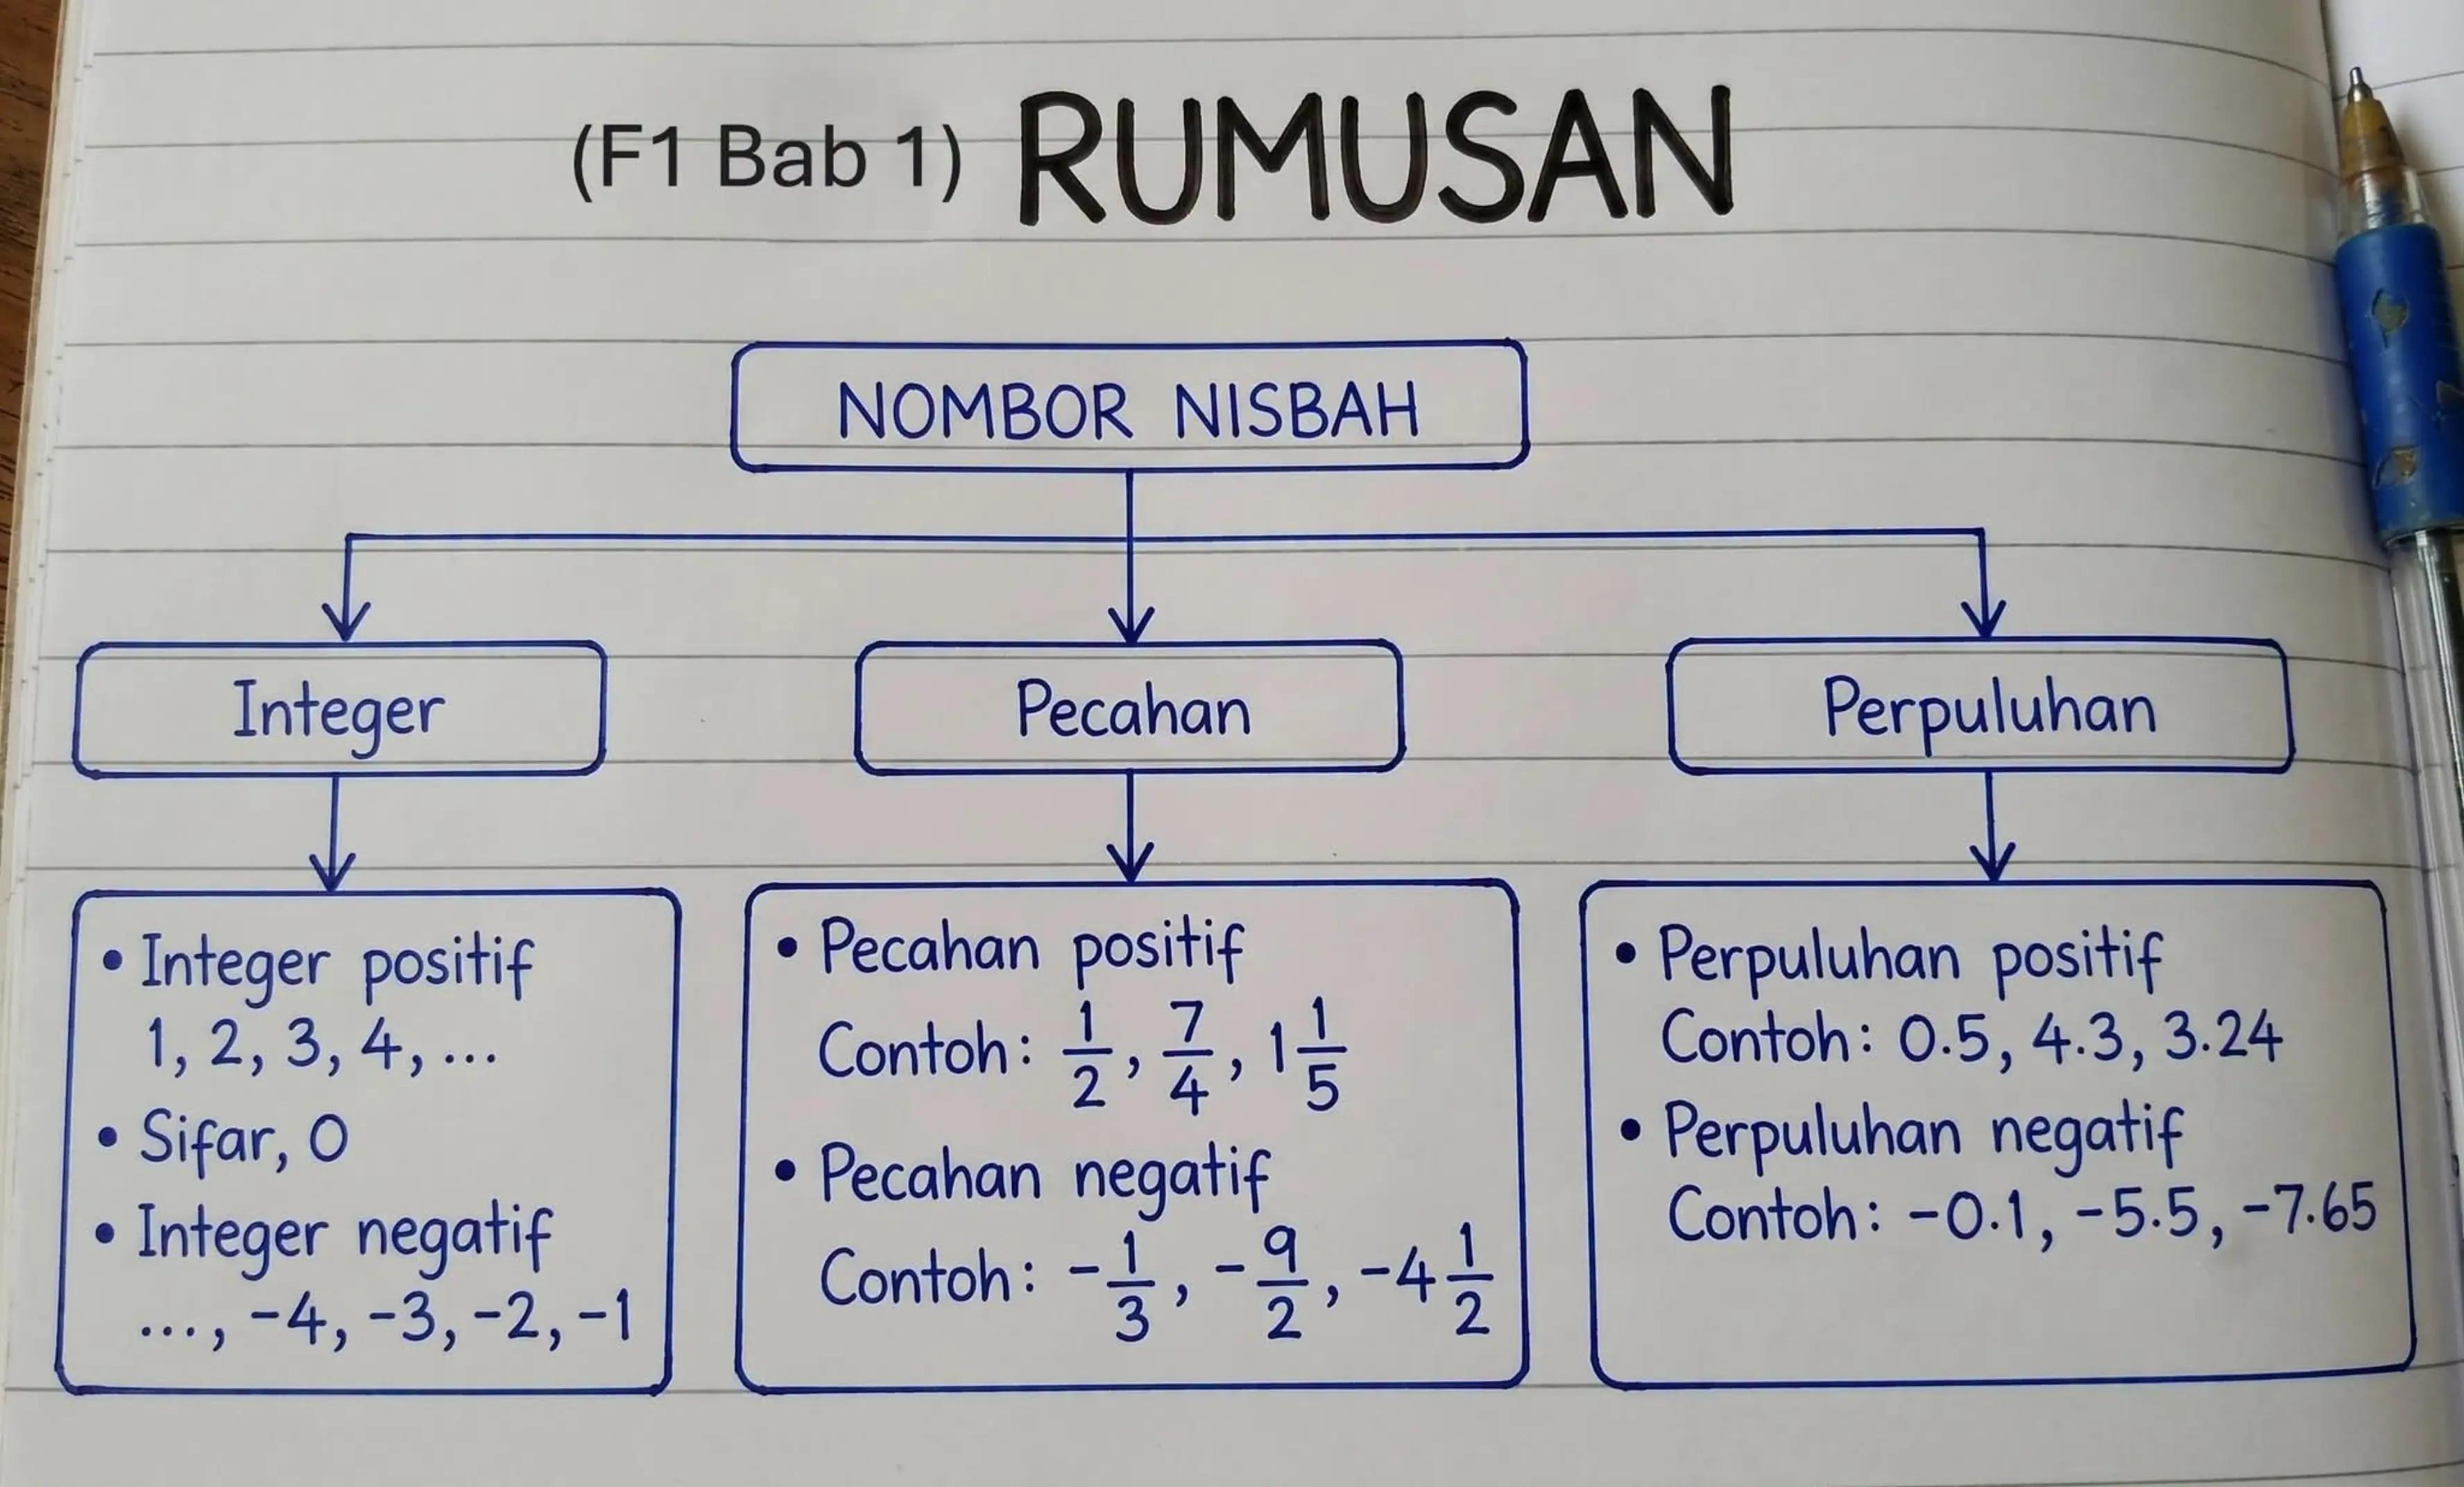 (F1 Bab 1) RUMUSAN
NOMBOR NISBAH
Integer
Pecahan
Perpuluhan
• Integer positif
1, 2, 3, 4, ...
• Sifar, 0
• Integer negatif
..., -4, -3, -2, -1
• Pecahan positif
Contoh: 1/2, 7/4, 1 1/5
• Pecahan negatif
Contoh: -1/3, -9/2, -4 1/2
• Perpuluhan positif
Contoh: 0.5, 4.3, 3.24
• Perpuluhan negatif
Contoh: -0.1, -5.5, -7.65